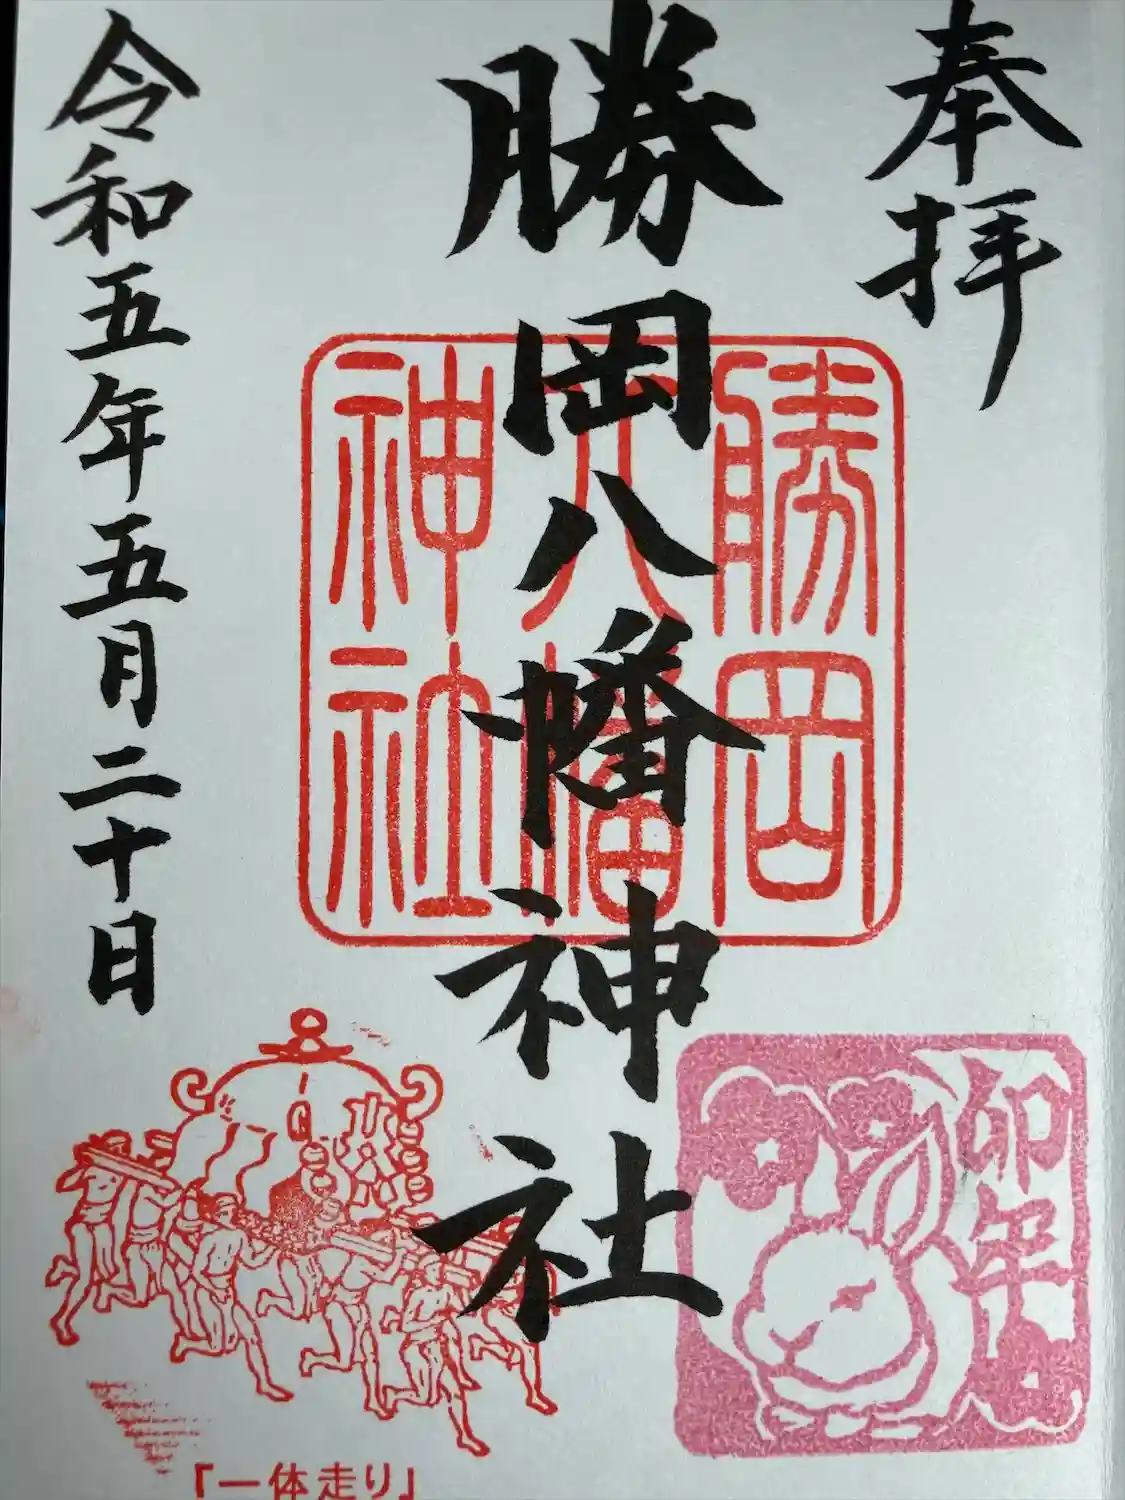 奉拝
勝岡八幡神社
勝岡
八幡
神社
令和五年五月二十日
卯年
「一体走り」